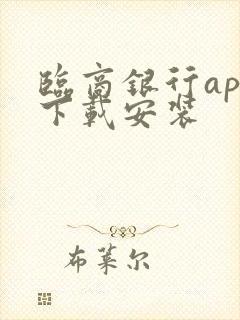 臨商銀行ap
下載安裝
布萊尔